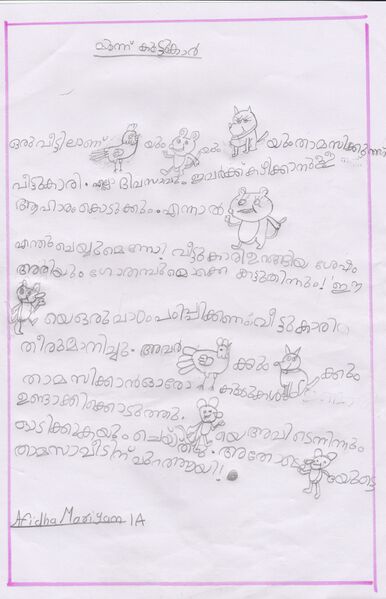 മൂന്ന് കൂട്ടുകാർ
ഒരു വീട്ടിലാണ് യും യും യും താമസിക്കുന്നത്
വീട്ടുകാരി എല്ലാ ദിവസവും ഇവർക്ക് കഴിക്കാനുള്ള
ആഹാരം കൊടുക്കും. എന്നാൽ
എന്തു ചെയ്യുമെന്നോ? വീട്ടുകാരി ഉറങ്ങിയ ശേഷം
അരിയും ഗോതമ്പുമൊക്കെ കട്ടുതിന്നും! ഈ
യെ ഒരു പാഠം പഠിപ്പിക്കണം വീട്ടുകാരി
തീരുമാനിച്ചു. അവർ ക്കും ക്കും
താമസിക്കാൻ ഓരോ കൂടുകൾ
ഉണ്ടാക്കിക്കൊടുത്തു.
യെ അവിടെനിന്നും
ഓടിക്കുകയും ചെയ്തു. അതോടെ യുടെ
താമസം വീടിന് പുറത്തായി!
Afidha Mariyam 1A